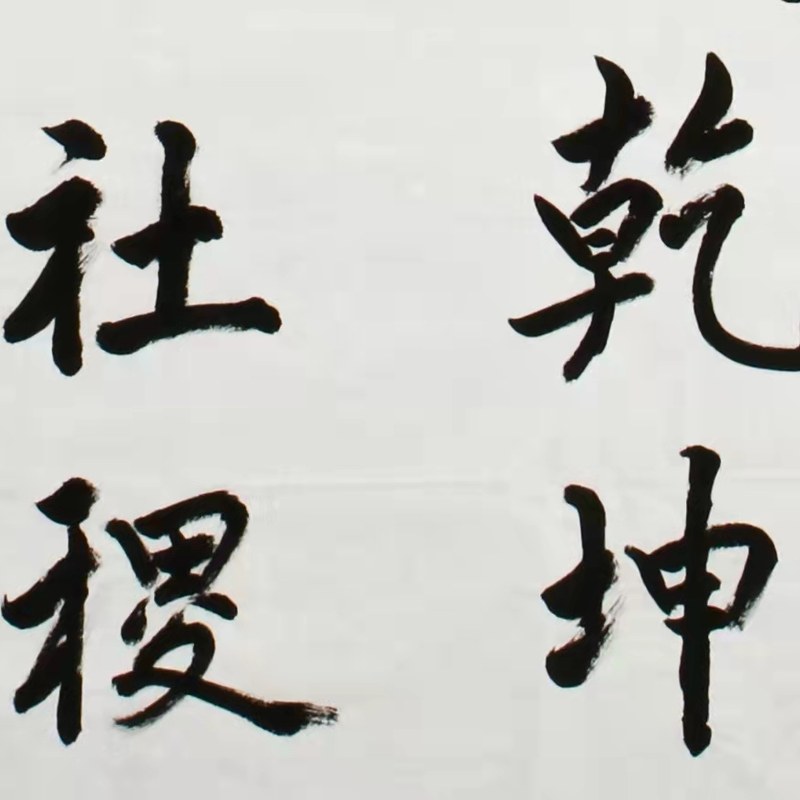 乾坤
社稷